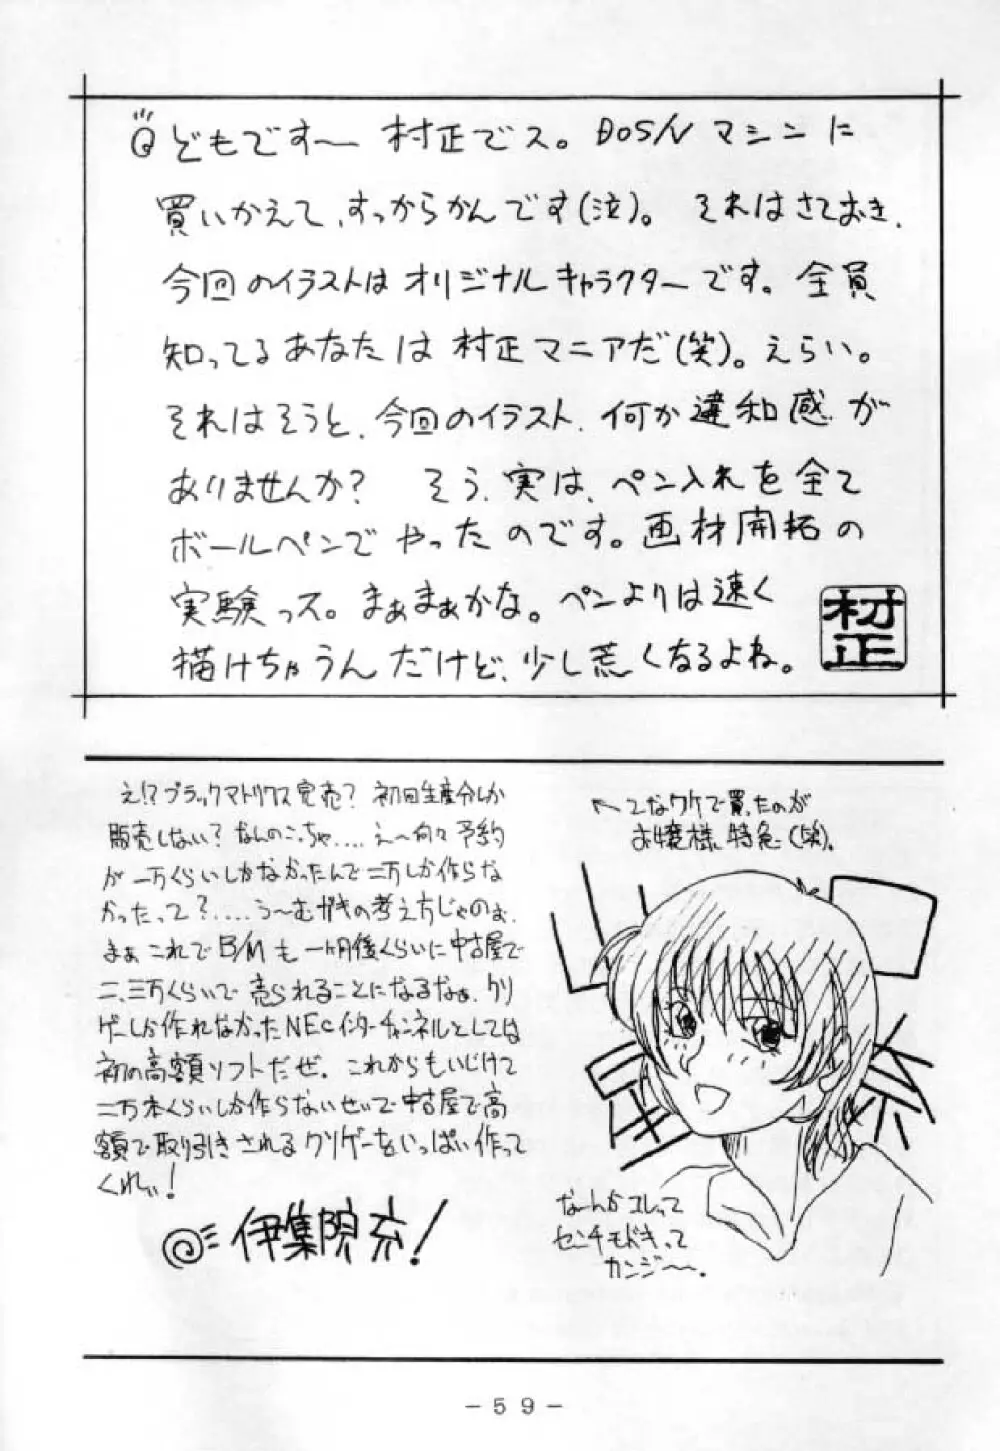 どもです〜 村正でス。DOS/V マシンに
買いかえて、すっからかんです(泣)。 それはさておき、
今回のイラストはオリジナルキャラクターです。全員
知ってるあなたは 村正マニアだ(笑)。えらい。
それはそうと、今回のイラスト、何か違和感が
ありませんか? そう、実は、ペン入れを全て
ボールペンでやったのです。画材開拓の
実験っス。まぁまぁかな。ペンよりは速く
描けちゃうんだけど、少し荒くなるよね。
村正
え!?ブラックマトリクス完売? 初回生産分しか
販売しない?なんのこっちゃ....え〜何々予約
が一万くらいしかなかったんで二万しか作らな
かったって?....う〜むガキの考え方じゃのぉ。
まぁこれでB/Mも一ヶ月後くらいに中古屋で
二、三万くらいで売られることになるなぁ。クリ
ゲーしか作れなかったNECインターチャンネルとしては
初の高額ソフトだぜ。これからもいじけて
二万本くらいしか作らないせいで中古屋で高
額で取り引きされるクソゲーをいっぱい作って
くれぃ!
伊集院
!
←てなワケで買ったのが
お嬢様特急(笑)。
なーんかコレって
センチモドキって
カンジ〜〜。
-59-